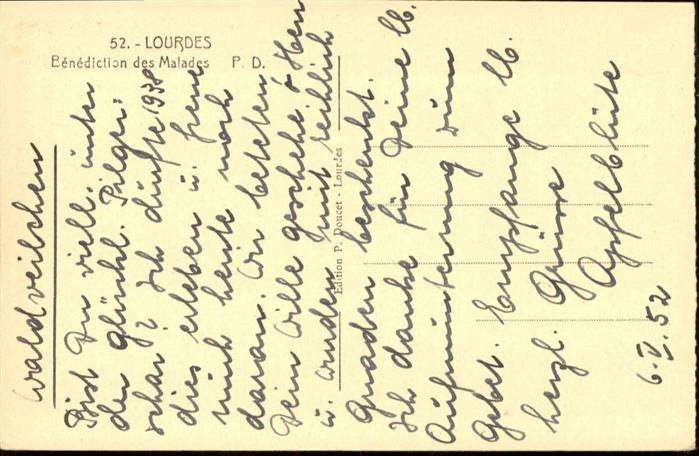 52. - LOURDES
Bénédiction des Malades P. D.
Edition P. Doucet - Lourdes
Waldveilchen
Bist Du viell. unter
der glückl. Pilger-
schar? Ich durfte 1938
dies erleben u. freue
mich heute noch
daran. Wir beteten
Dein Wille geschehe o Herr
u. wurden mit reichlich
Gnaden beschenkt.
Ich danke für Deine lb.
Aufmunterung zum
Gebet. Empfange lb.
herzl. Grüsse
Apfelblüte
6. V. 52